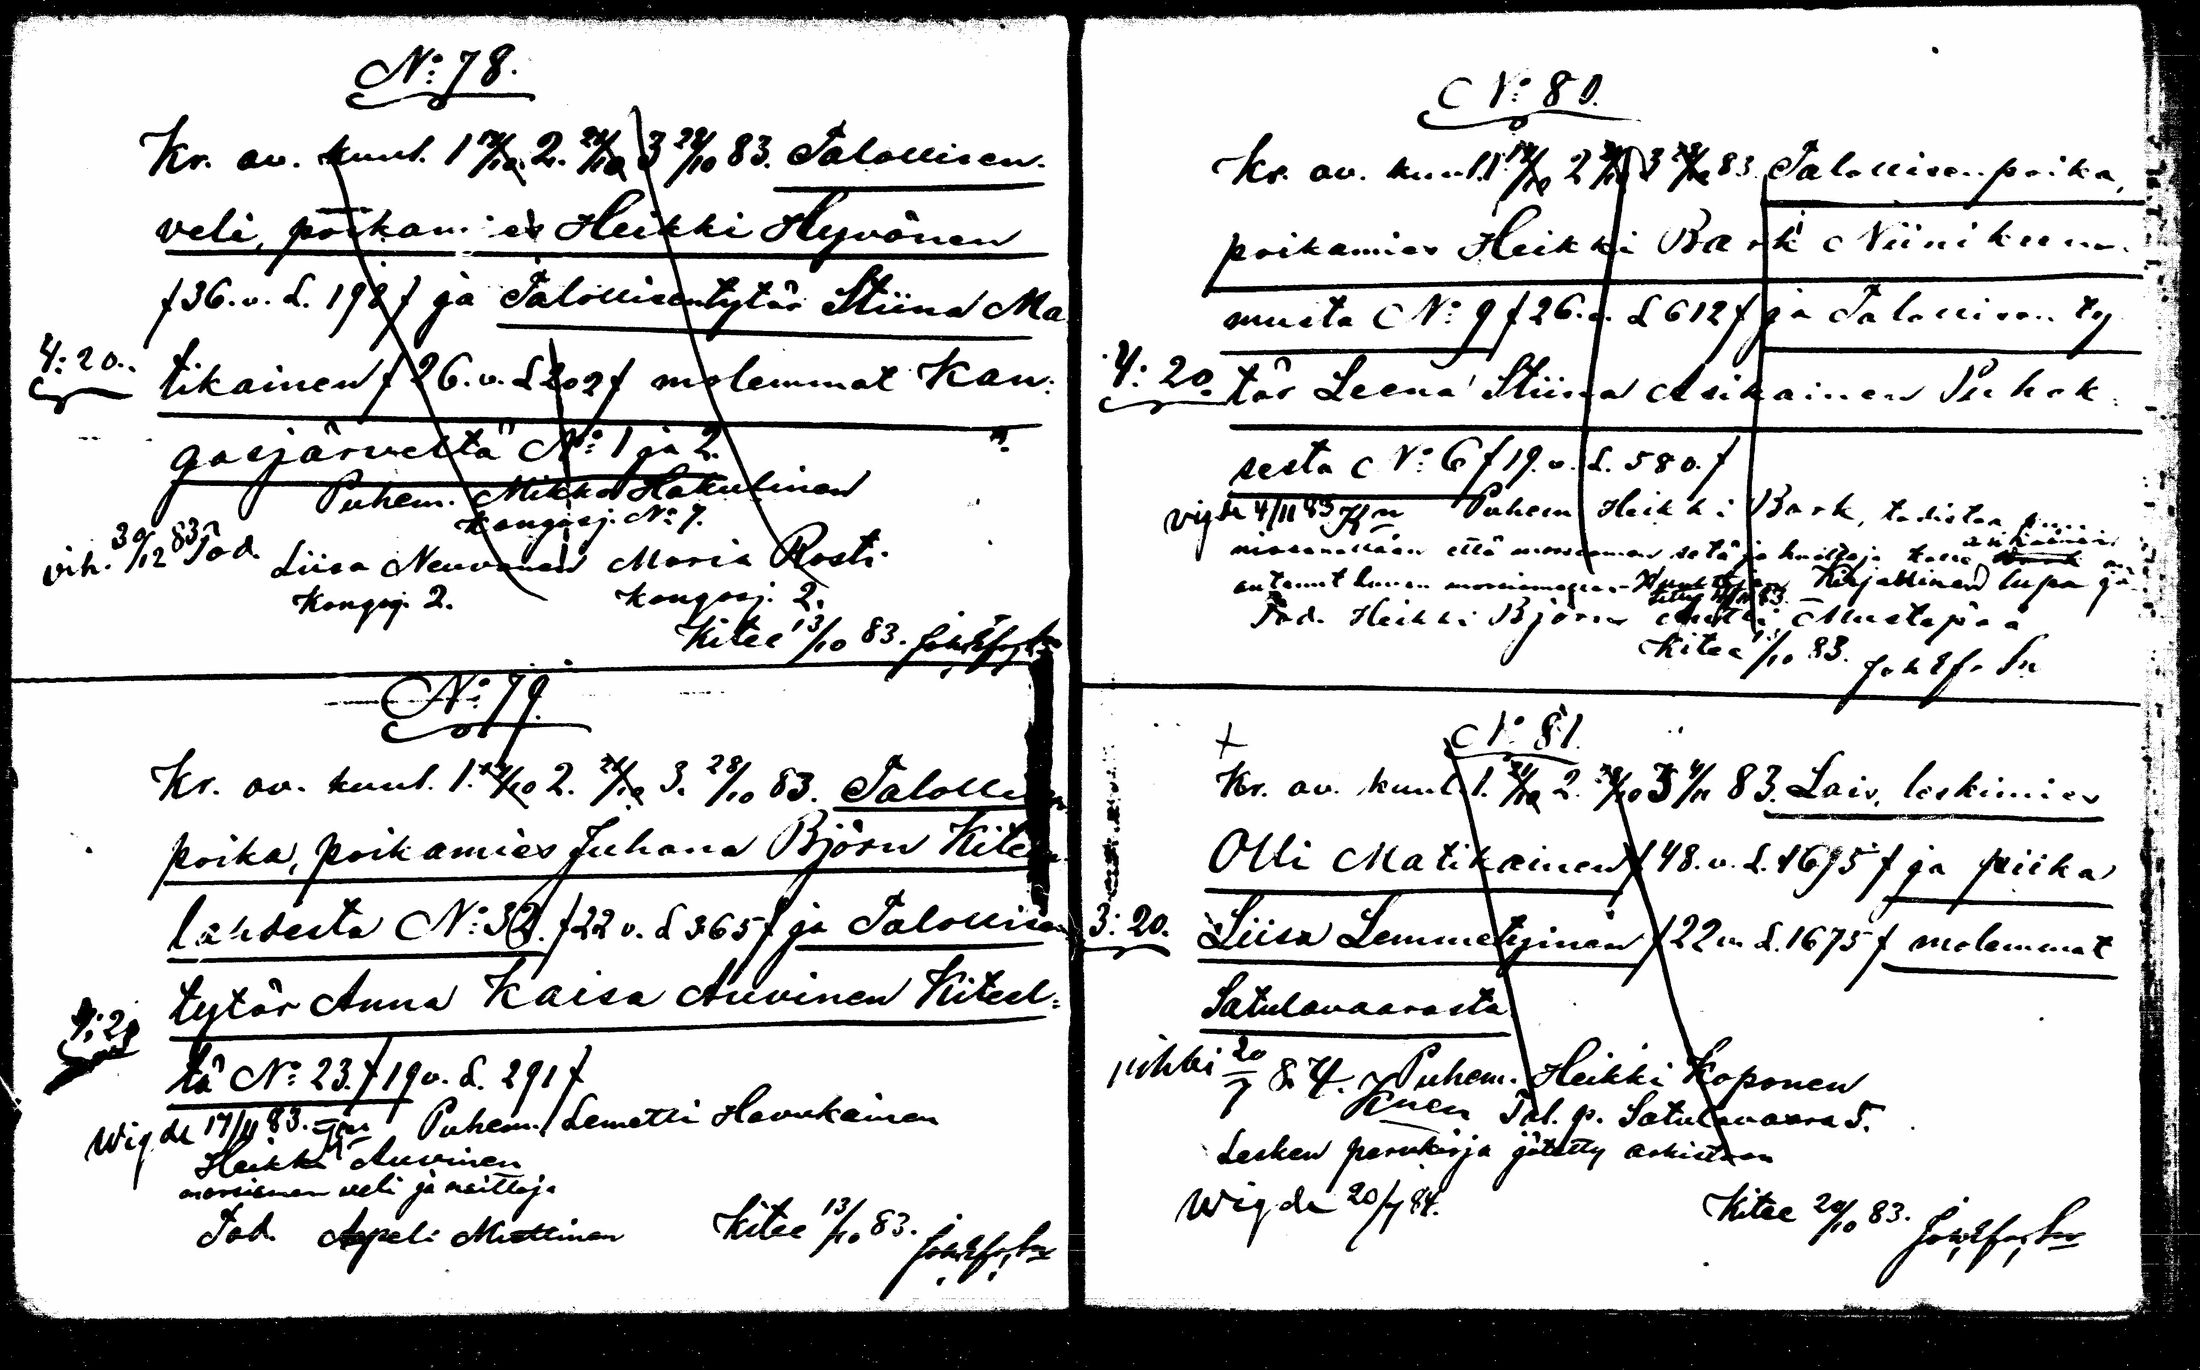 No: 78.
Kr. av. kuul. 1 14/10. 2. 21/10 3 28/10 83. Talollisen
veli, poikamies Heikki Hyvönen
f 36. v. L. 198 f ja Talollisentytär Stiina Ma
4: 20. tikainen f 26. v. L 202 f molemmat Kan:
gasjärveltä No: 1 ja 2.
Puhem. Mikko Hakulinen
Kangasj. No 7.
vih. 30/12 83 Tod. Liisa Neuvonen Maria Rosti
Kangasj. 2. Kangasj. 2.
Kitee 13/10 83.
No: 79.
Kr. av. kuul. 1. 14/10 2. 21/10 3. 28/10 83. Talollisen
poika, poikamies Juhana Björn Kiteen
lahdesta No: 32. f 22 v. L 365 f ja Talollisen
tytär Anna Kaisa Auvinen Kiteel:
4: 20 tä No: 23. f 19 v. L. 291 f
Wigde 17/11 83. Puhem. Lemetti Havukainen
Heikki Auvinen
morsiamen veli ja naittaja
Tod. Apeli Miettinen Kitee 13/10 83.
No: 80.
Kr. av. kuul. 1 14/10 2 21/10 3 28/10 83. Talollisen poika,
poikamies Heikki Bark Niinikum
musta No: 9 f 26. v. L 612 f ja Talollisen ty
4: 20. tär Leena Stiina Asikainen Puhok
sesta No: 6 f 19. v. L. 580. f
vigde 4/11 83 Puhem Heikki Bark, todistaa
että morsiamen setä ja holhoja
antanut hänen Kirjallinen lupa
Tod. Heikki Björn Antti Mustapää
Kitee 13/10 83.
No: 81.
Kr. av. kuul. 1. 21/10 2. 28/10 3 4/11 83. Lais. leskimies
Olli Matikainen f 48. v. L. 1695 f ja piika
3: 20. Liisa Lemmetyinen f 22 v. L. 1675 f molemmat
Satulavaarasta
vihki 20/7 84. Puhem. Heikki Koponen
Tal. p. Satulavaara 5.
Lesken perukirja jätetty arkistoon
Wigde 20/7 84. Kitee 20/10 83.